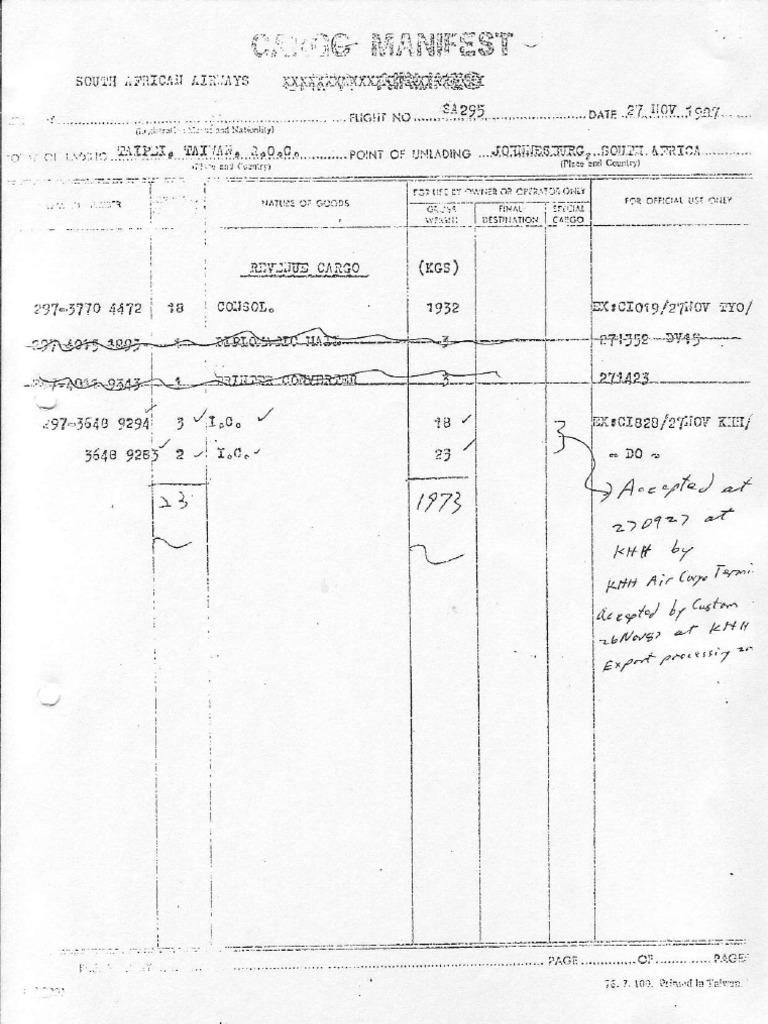 CARGO MANIFEST
SOUTH AFRICAN AIRWAYS
FLIGHT NO SA295 DATE 27 NOV 1987
(Registration Marks and Nationality)
TAIPEI, TAIWAN, R.O.C. POINT OF UNLADING JOHNNESBURG, SOUTH AFRICA
(Place and Country) (Place and Country)
NATURE OF GOODS FOR USE BY OWNER OR OPERATOR ONLY FOR OFFICIAL USE ONLY
GROSS WEIGHT FINAL DESTINATION SPECIAL CARGO
REVENUE CARGO (KGS)
297-3770 4472 18 CONSOL. 1932 EX:CI019/27NOV TYO/
DIPLOMATIC MAIL 3 271352
PRINTER CONVERTER 3 271423
297-3648 9294 3 I.C. 18 EX:CI828/27NOV KHH/
3648 9283 2 I.C. 23 - DO -
23 1973
Accepted at
270927 at
KHH by
KHH Air Cargo Termi
Accepted by Custom
at KHH
Export processing
PAGE OF PAGE
76. 7. 100. Printed in Taiwan.